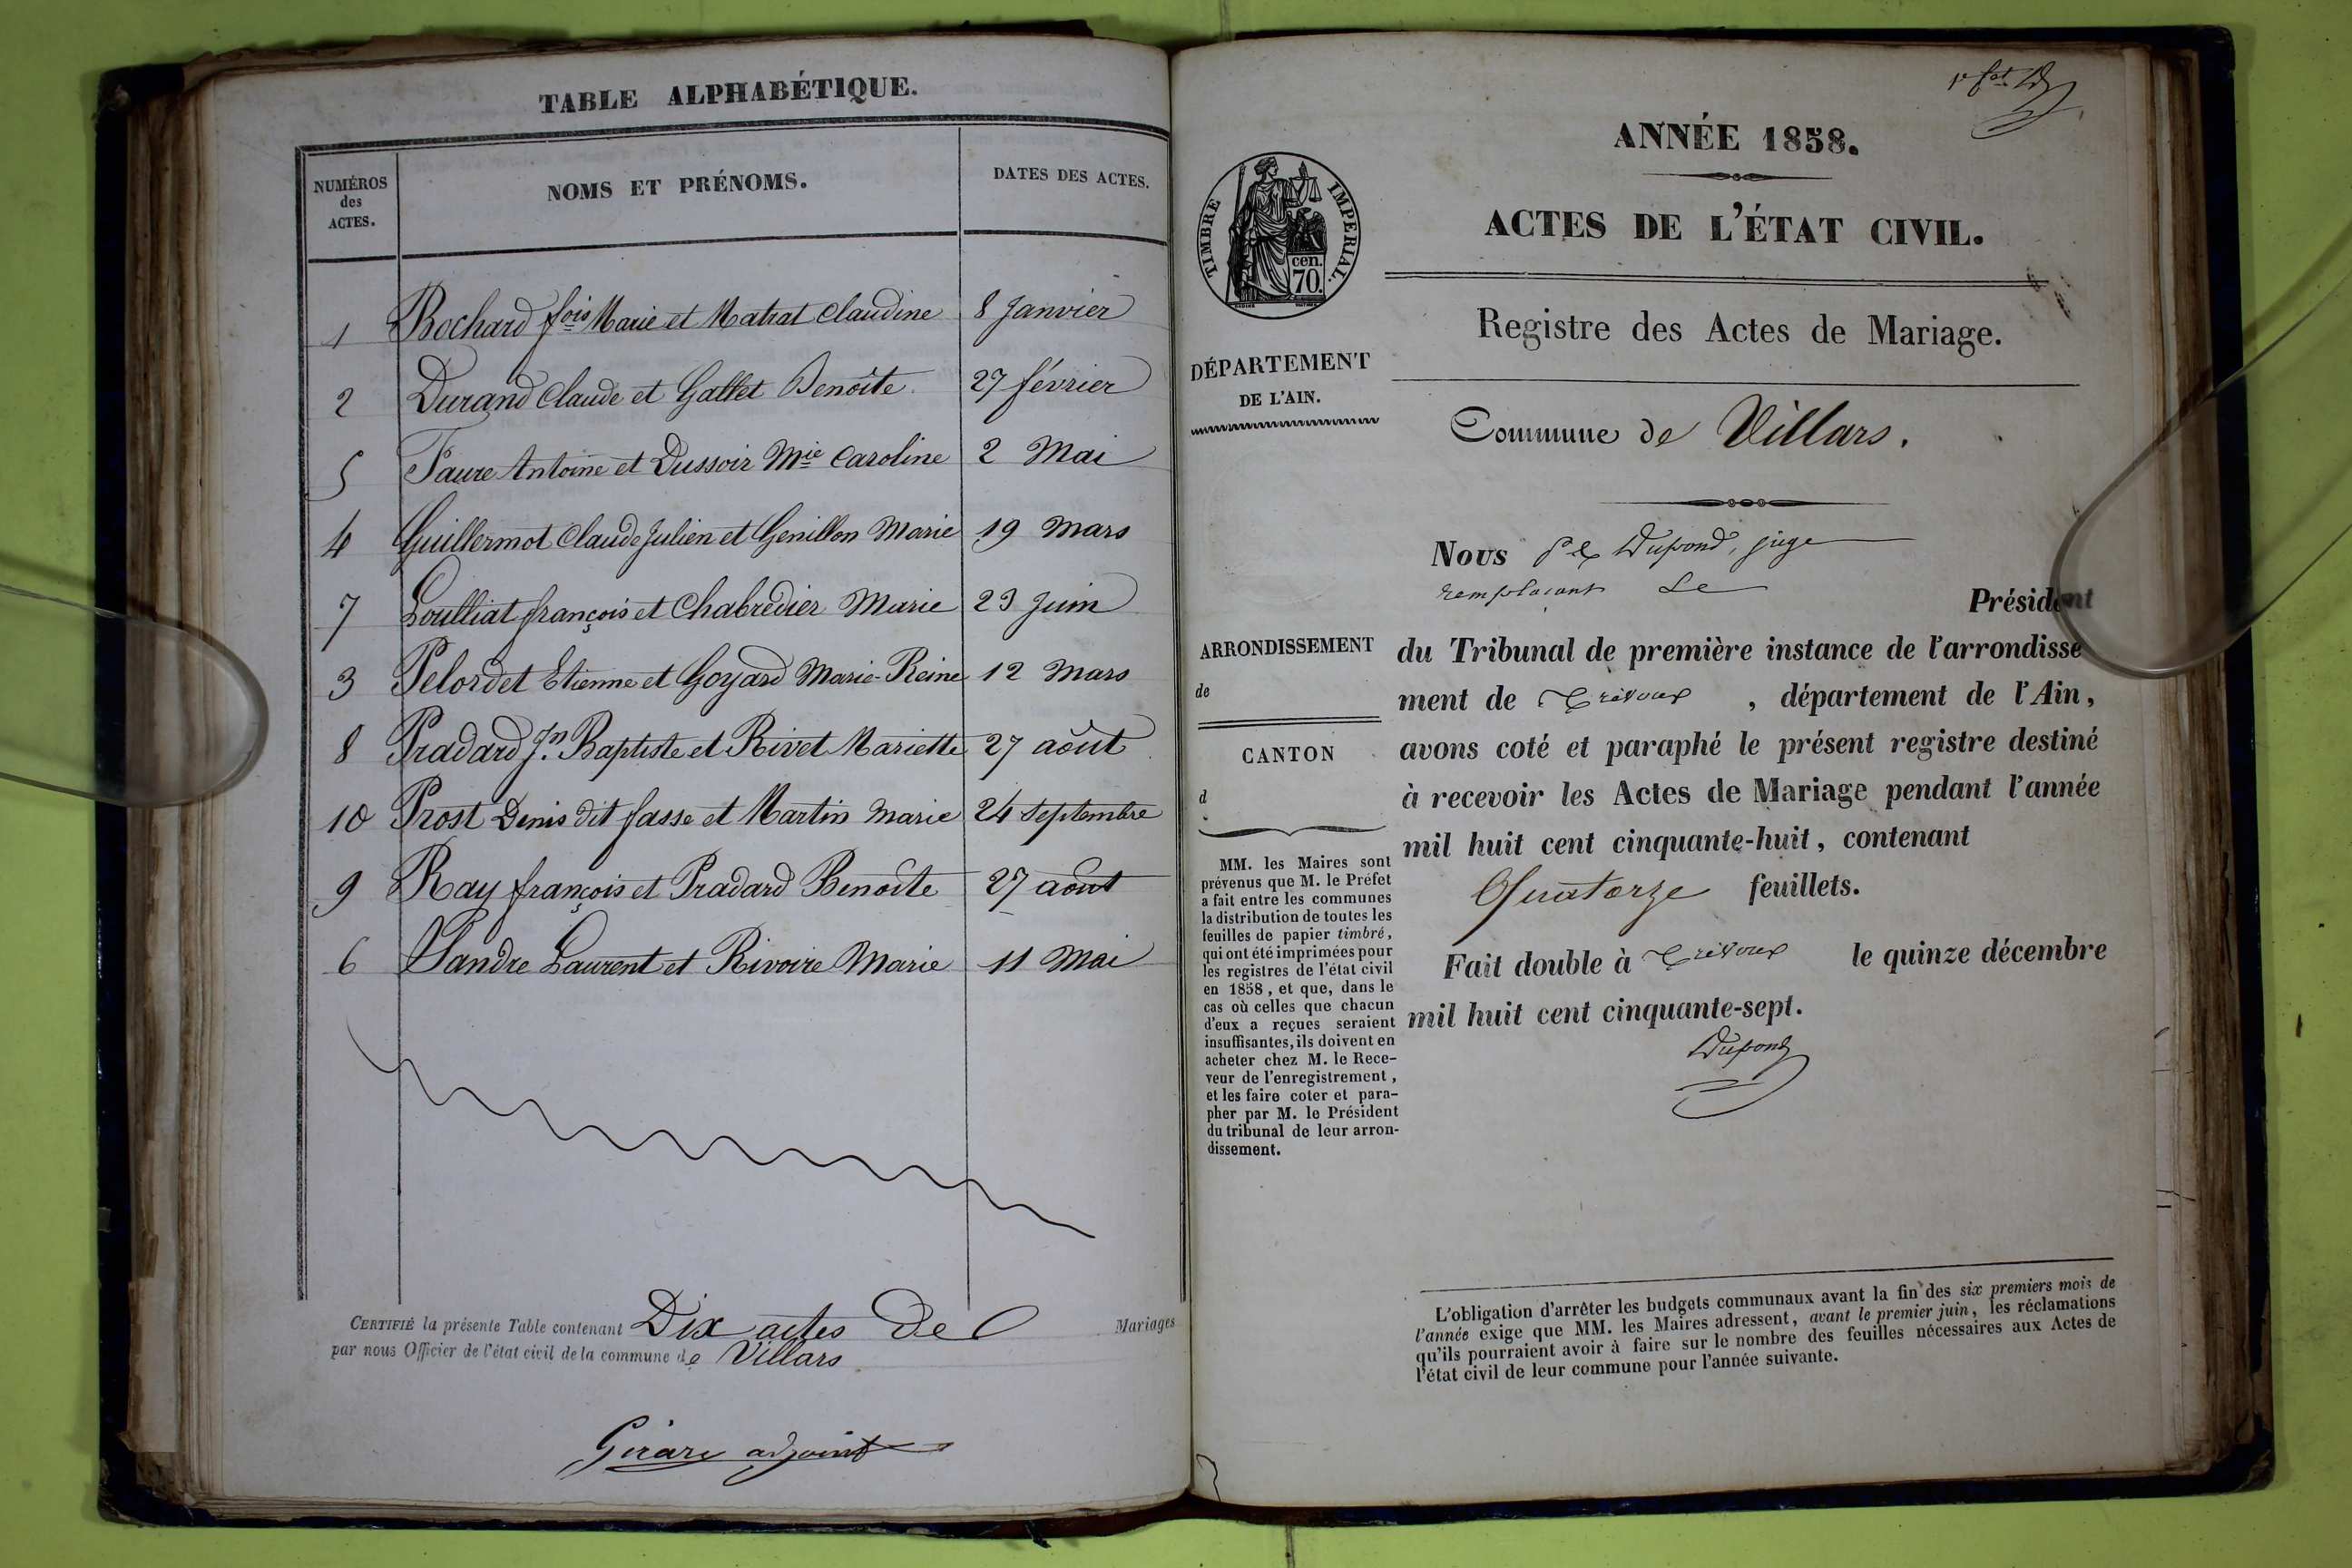 TABLE ALPHABÉTIQUE.
NUMÉROS
des
ACTES.
NOMS ET PRÉNOMS.
DATES DES ACTES.
1 Bochard fois Marie et Matrat Claudine 8 Janvier
2 Durand Claude et Gallet Benoîte 27 février
5 Faure Antoine et Dussoir Mie Caroline 2 Mai
4 Guillermot Claude Julien et Genillon Marie 19 Mars
7 Loulliat françois et Chabredier Marie 23 Juin
3 Pelordet Etienne et Goyard Marie-Reine 12 Mars
8 Pradard Jn. Baptiste et Rivet Mariette 27 août
10 Prost Denis dit fasse et Martin Marie 24 Septembre
9 Ray françois et Pradard Benoîte 27 août
6 Sandre Laurent et Rivoire Marie 11 Mai
CERTIFIÉ la présente Table contenant Dix actes de Mariages
par nous Officier de l'état civil de la commune de Villars
Girard adjoint
ANNÉE 1858.
ACTES DE L'ÉTAT CIVIL.
TIMBRE IMPERIAL.
cen.
70.
Registre des Actes de Mariage.
DÉPARTEMENT
DE L'AIN.
Commune de Villars.
ARRONDISSEMENT
de
CANTON
d
MM. les Maires sont
prévenus que M. le Préfet
a fait entre les communes
la distribution de toutes les
feuilles de papier timbré,
qui ont été imprimées pour
les registres de l'état civil
en 1858, et que, dans le
cas où celles que chacun
d'eux a reçues seraient
insuffisantes, ils doivent en
acheter chez M. le Rece-
veur de l'enregistrement,
et les faire coter et para-
pher par M. le Président
du tribunal de leur arron-
dissement.
Nous Dupond, juge
remplaçant Le Président
du Tribunal de première instance de l'arrondisse-
ment de Trévoux, département de l'Ain,
avons coté et paraphé le présent registre destiné
à recevoir les Actes de Mariage pendant l'année
mil huit cent cinquante-huit, contenant
Quatorze feuillets.
Fait double à Trévoux le quinze décembre
mil huit cent cinquante-sept.
Dupond
L'obligation d'arrêter les budgets communaux avant la fin des six premiers mois de
l'année exige que MM. les Maires adressent, avant le premier juin, les réclamations
qu'ils pourraient avoir à faire sur le nombre des feuilles nécessaires aux Actes de
l'état civil de leur commune pour l'année suivante.